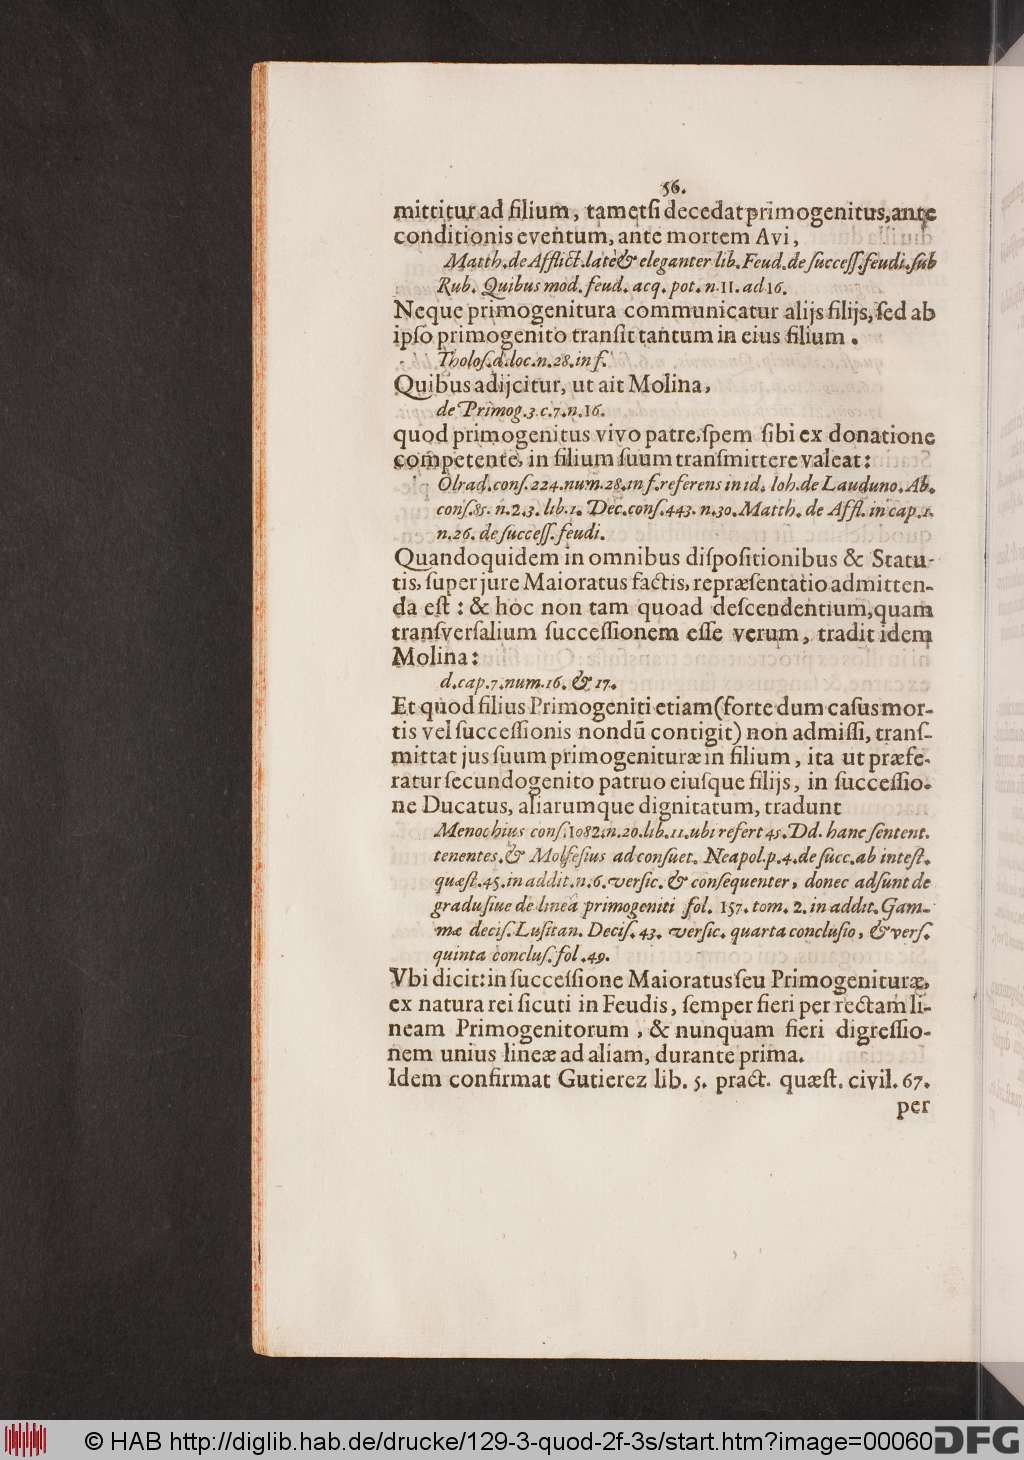 56.
mittitur ad filium, tametſi decedat primogenitus, ante
conditionis eventum, ante mortem Avi,
Matth. de Afflict. latè & eleganter lib. Feud. de ſucceſſ. feudi. ſub
Rub. Quibus mod. feud. acq. pot. n. 11. ad 16.
Neque primogenitura communicatur alijs filijs, ſed ab
ipſo primogenito tranſit tantum in eius filium.
Tholoſ. d. loc. n. 28. in f.
Quibus adijcitur, ut ait Molina,
de Primog. 3. c. 7. n. 16.
quod primogenitus vivo patre, ſpem ſibi ex donatione
competente, in filium ſuum tranſmittere valeat:
Olrad. conſ. 224. num. 28. in f. referens in id. Ioh. de Lauduno. Ab.
conſ. 85. n. 2. 3. lib. 1. Dec. conſ. 443. n. 30. Matth. de Affl. in cap. 1.
n. 26. de ſucceſſ. feudi.
Quandoquidem in omnibus diſpoſitionibus & Statu-
tis, ſuper jure Maioratus factis, repræſentatio admitten-
da eſt: & hoc non tam quoad deſcendentium, quam
tranſverſalium ſucceſſionem eſſe verum, tradit idem
Molina:
d. cap. 7. num. 16. & 17.
Et quod filius Primogeniti etiam (forte dum caſus mor-
tis vel ſucceſſionis nondū contigit) non admiſſi, tranſ-
mittat jus ſuum primogenituræ in filium, ita ut præfe-
ratur ſecundogenito patruo eiuſque filijs, in ſucceſſio-
ne Ducatus, aliarumque dignitatum, tradunt
Menochius conſ. 1082. n. 20. lib. 11. ubi refert 45. Dd. hanc ſentent.
tenentes. & Molfeſius ad conſuet. Neapol. p. 4. de ſucc. ab inteſt.
quæſt. 45. in addit. n. 6. verſic. & conſequenter, donec adſunt de
gradu ſive de linea primogeniti fol. 157. tom. 2. in addit. Gam-
mæ deciſ. Luſitan. Deciſ. 43. verſic. quarta concluſio, & verſ.
quinta concluſ. fol. 49.
Vbi dicit: in ſucceſſione Maioratus ſeu Primogenituræ,
ex natura rei ſicuti in Feudis, ſemper fieri per rectam li-
neam Primogenitorum, & nunquam fieri digreſſio-
nem unius lineæ ad aliam, durante prima.
Idem confirmat Gutierez lib. 5. pract. quæſt. civil. 67.
per
© HAB http://diglib.hab.de/drucke/129-3-quod-2f-3s/start.htm?image=00060
DFG